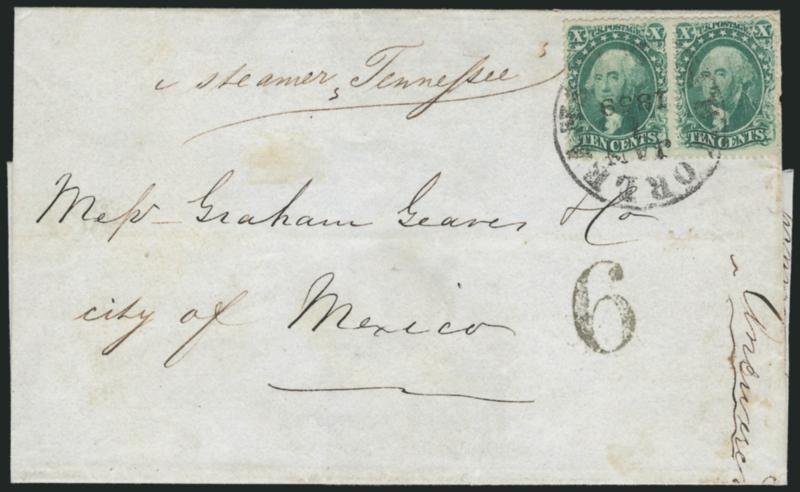 steamer Tennessee
X U.S. POSTAGE X
TEN CENTS
X U.S. POSTAGE X
TEN CENTS
ORLEA
JAN
1859
Mess Graham Geaves & Co
city of Mexico
6